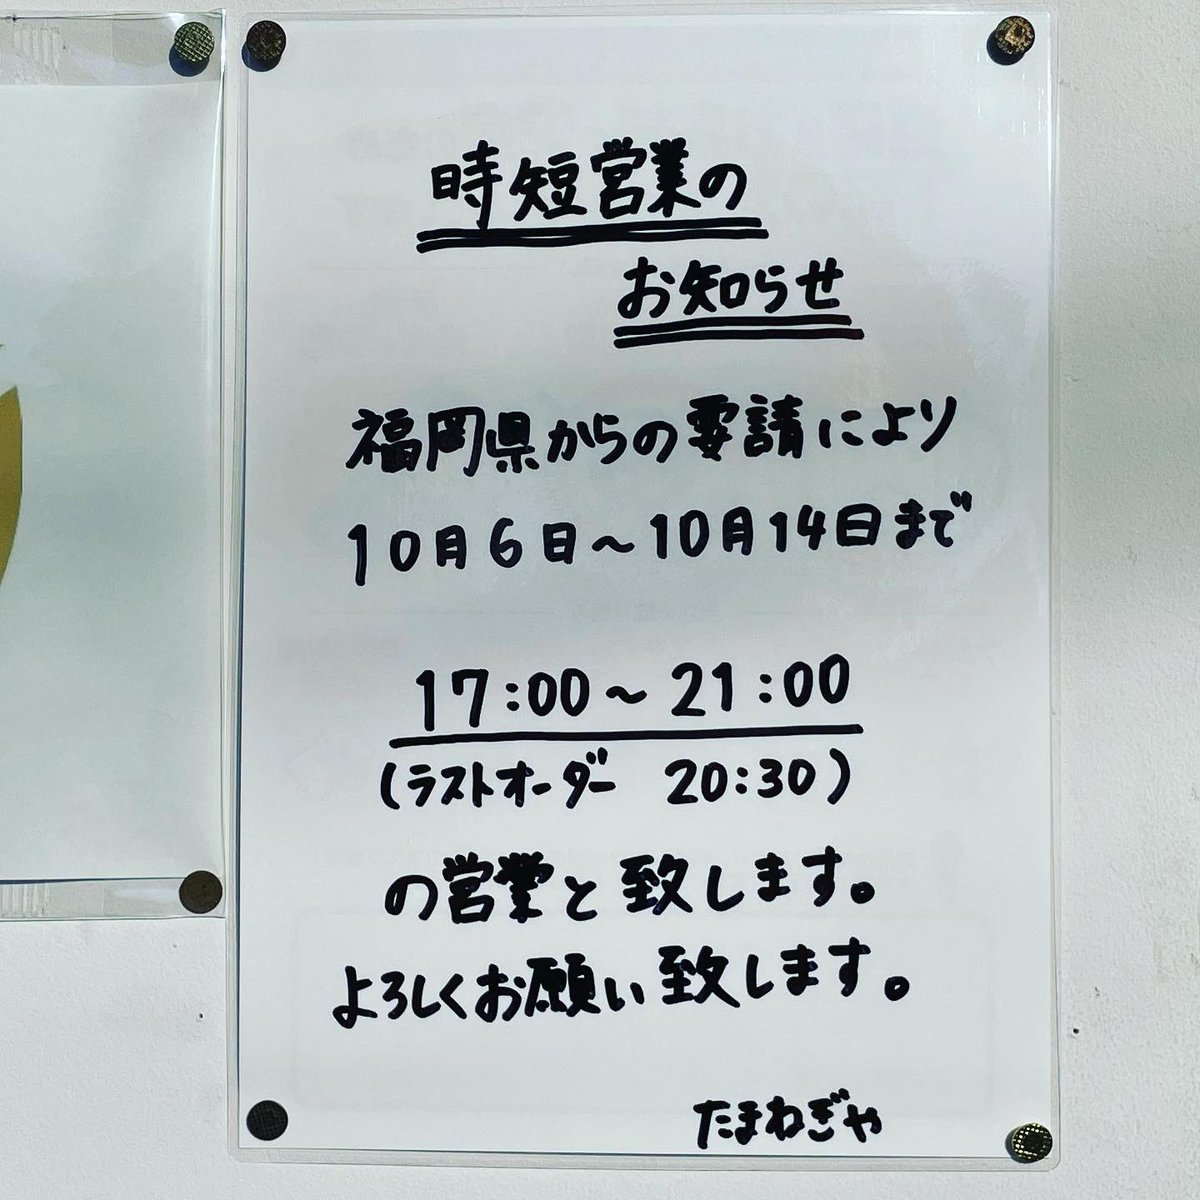 時短営業の
お知らせ
福岡県からの要請により
10月6日～10月14日まで
17:00～21:00
(ラストオーダー 20:30)
の営業と致します。
よろしくお願い致します。
たまねぎや